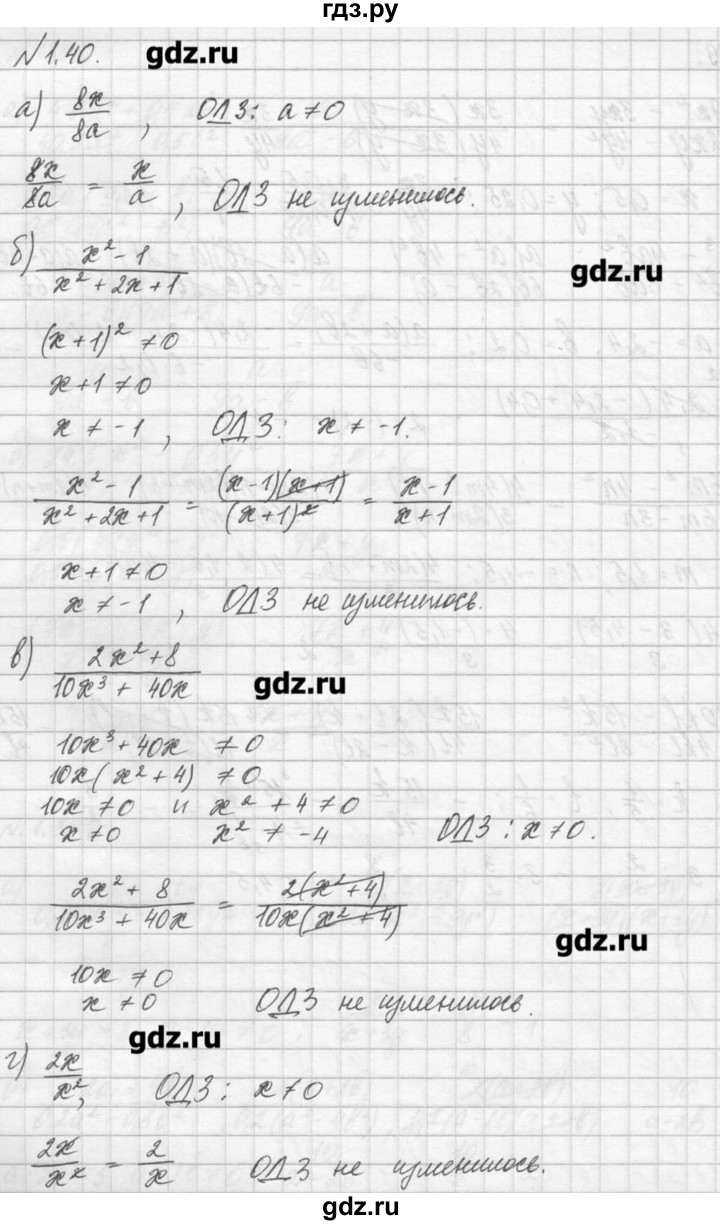 гдз.ру
№1.40. gdz.ru
а) 8x/8a , ОДЗ: a≠0
8x/8a = x/a , ОДЗ не изменилось.
б) x²-1/x²+2x+1 gdz.ru
(x+1)² ≠0
x+1≠0
x ≠ -1 , ОДЗ: x ≠ -1.
x²-1/x²+2x+1 = (x-1)(x+1)/(x+1)² = x-1/x+1
x+1≠0
x ≠ -1 , ОДЗ не изменилось.
в) 2x²+8/10x³+40x gdz.ru
10x³+40x ≠0
10x(x²+4) ≠0
10x ≠0 и x²+4≠0
x≠0 x² ≠ -4 ОДЗ: x≠0.
2x²+8/10x³+40x = 2(x²+4)/10x(x²+4)
gdz.ru
10x ≠0
x ≠0 ОДЗ не изменилось.
gdz.ru
г) 2x/x², ОДЗ: x≠0
2x/x² = 2/x ОДЗ не изменилось.
gdz.ru